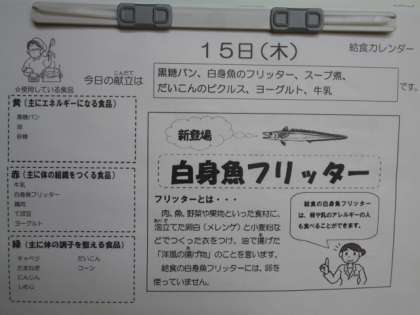 15日(木)
給食カレンダー
今日の献立は
こんだて
黒糖パン、白身魚のフリッター、スープ煮、
だいこんのピクルス、ヨーグルト、牛乳
です。
☆使用している食品
黄(主にエネルギーになる食品)
黒糖パン
油
砂糖
赤(主に体の組織をつくる食品)
牛乳
白身魚フリッター
鶏肉
てぼ豆
ヨーグルト
緑(主に体の調子を整える食品)
キャベツ
だいこん
たまねぎ
コーン
にんじん
しめじ
新登場
白身魚フリッター
フリッターとは・・・
肉、魚、野菜や果物といった食材に、
泡立てた卵白(メレンゲ)と小麦粉な
どでつくった衣をつけ、油で揚げた
「洋風の揚げ物」のことを言います。
給食の白身魚フリッターには、卵を
使っていません。
給食の白身魚フリッター
は、卵や乳のアレルギーの人
も食べることができます。